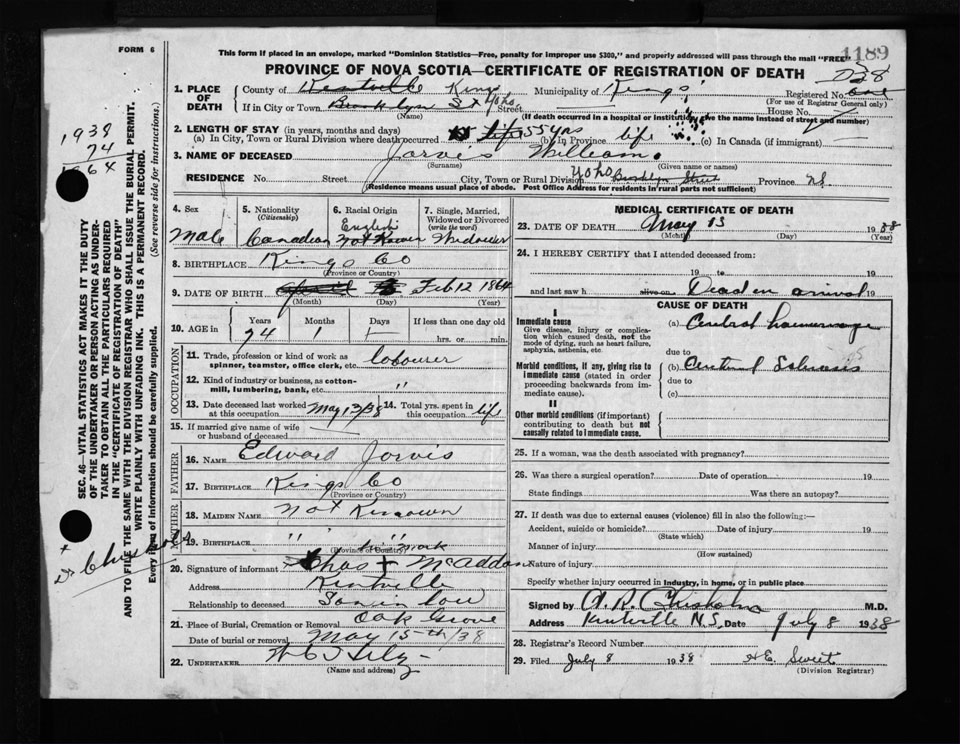 FORM 6
This form if placed in an envelope, marked "Dominion Statistics—Free, penalty for improper use $300," and properly addressed will pass through the mail "FREE"
1189
PROVINCE OF NOVA SCOTIA—CERTIFICATE OF REGISTRATION OF DEATH
1. PLACE OF DEATH
County of Kentville Kings Municipality of Kings Registered No.
(For use of Registrar General only)
If in City or Town Brooklyn St Street House No.
(Name) (If death occurred in a hospital or institution, give the name instead of street and number)
2. LENGTH OF STAY (in years, months and days)
(a) In City, Town or Rural Division where death occurred life 55 yrs (b) In Province life (c) In Canada (if immigrant)
3. NAME OF DECEASED Jarvis William
(Surname) (Given name or names)
RESIDENCE No. Street City, Town or Rural Division Brooklyn Street Province N.S.
(Residence means usual place of abode. Post Office Address for residents in rural parts not sufficient)
4. Sex Male
5. Nationality (Citizenship) Canadian
6. Racial Origin English Not Known
7. Single, Married, Widowed or Divorced (write the word) Widower
8. BIRTHPLACE Kings Co
(Province or Country)
9. DATE OF BIRTH Feb 12 1864
(Month) (Day) (Year)
10. AGE in Years Months Days If less than one day old
74 1 hrs. or min.
OCCUPATION
11. Trade, profession or kind of work as spinner, teamster, office clerk, etc. labourer
12. Kind of industry or business, as cotton-mill, lumbering, bank, etc. "
13. Date deceased last worked at this occupation May 12/38 14. Total yrs. spent in this occupation life
15. If married give name of wife or husband of deceased
FATHER
16. NAME Edward Jarvis
17. BIRTHPLACE Kings Co
(Province or Country)
MOTHER
18. MAIDEN NAME Not Known
19. BIRTHPLACE " "
(Province or Country)
his mark
20. Signature of informant Chas + McAddam
Address Kentville
Relationship to deceased Son in law
21. Place of Burial, Cremation or Removal Oak Grove
Date of burial or removal May 15th/38
22. UNDERTAKER
(Name and address)
MEDICAL CERTIFICATE OF DEATH
23. DATE OF DEATH May 13 1938
(Month) (Day) (Year)
24. I HEREBY CERTIFY that I attended deceased from:
19 to 19
and last saw h alive on Dead on arrival 19
CAUSE OF DEATH
I
Immediate cause
Give disease, injury or complication which caused death, not the mode of dying, such as heart failure, asphyxia, asthenia, etc.
(a) Cerebral haemorrhage
due to
Morbid conditions, if any, giving rise to immediate cause (stated in order proceeding backwards from immediate cause).
(b)
due to
(c)
II
Other morbid conditions (if important) contributing to death but not causally related to immediate cause.
25. If a woman, was the death associated with pregnancy?
26. Was there a surgical operation? Date of operation 19
State findings Was there an autopsy?
27. If death was due to external causes (violence) fill in also the following:—
Accident, suicide or homicide? Date of injury 19
(State which)
Manner of injury
(How sustained)
Nature of injury
Specify whether injury occurred in Industry, in home, or in public place
Signed by A. R. Chisholm M.D.
Address Kentville N.S. Date July 8 1938
28. Registrar's Record Number
29. Filed July 8 1938 H.E. Sweet
(Division Registrar)
SEC. 46—VITAL STATISTICS ACT MAKES IT THE DUTY
OF THE UNDERTAKER OR PERSON ACTING AS UNDER-
TAKER TO OBTAIN ALL THE PARTICULARS REQUIRED
IN THE "CERTIFICATE OF REGISTRATION OF DEATH"
AND TO FILE THE SAME WITH THE DIVISION REGISTRAR WHO SHALL ISSUE THE BURIAL PERMIT.
WRITE PLAINLY WITH UNFADING INK. THIS IS A PERMANENT RECORD.
Every item of information should be carefully supplied. (See reverse side for instructions.)
1938
74
1864
Dr Chisholm